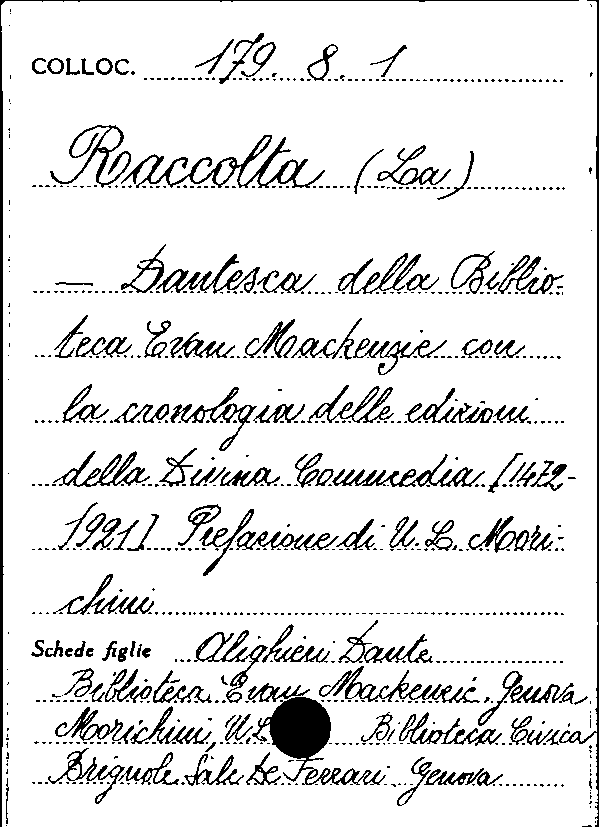 COLLOC. 179. 8. 1
Raccolta (La)
— Dantesca della Biblio-
teca Evan Mackenzie con
la cronologia delle edizioni
della Divina Commedia [1472-
1921] Prefazione di U. L. Mori-
chini
Schede figlie Alighieri Dante
Biblioteca Evan Mackenzie. Genova
Morichini, U. L. Biblioteca Civica
Brignole Sale De Ferrari Genova